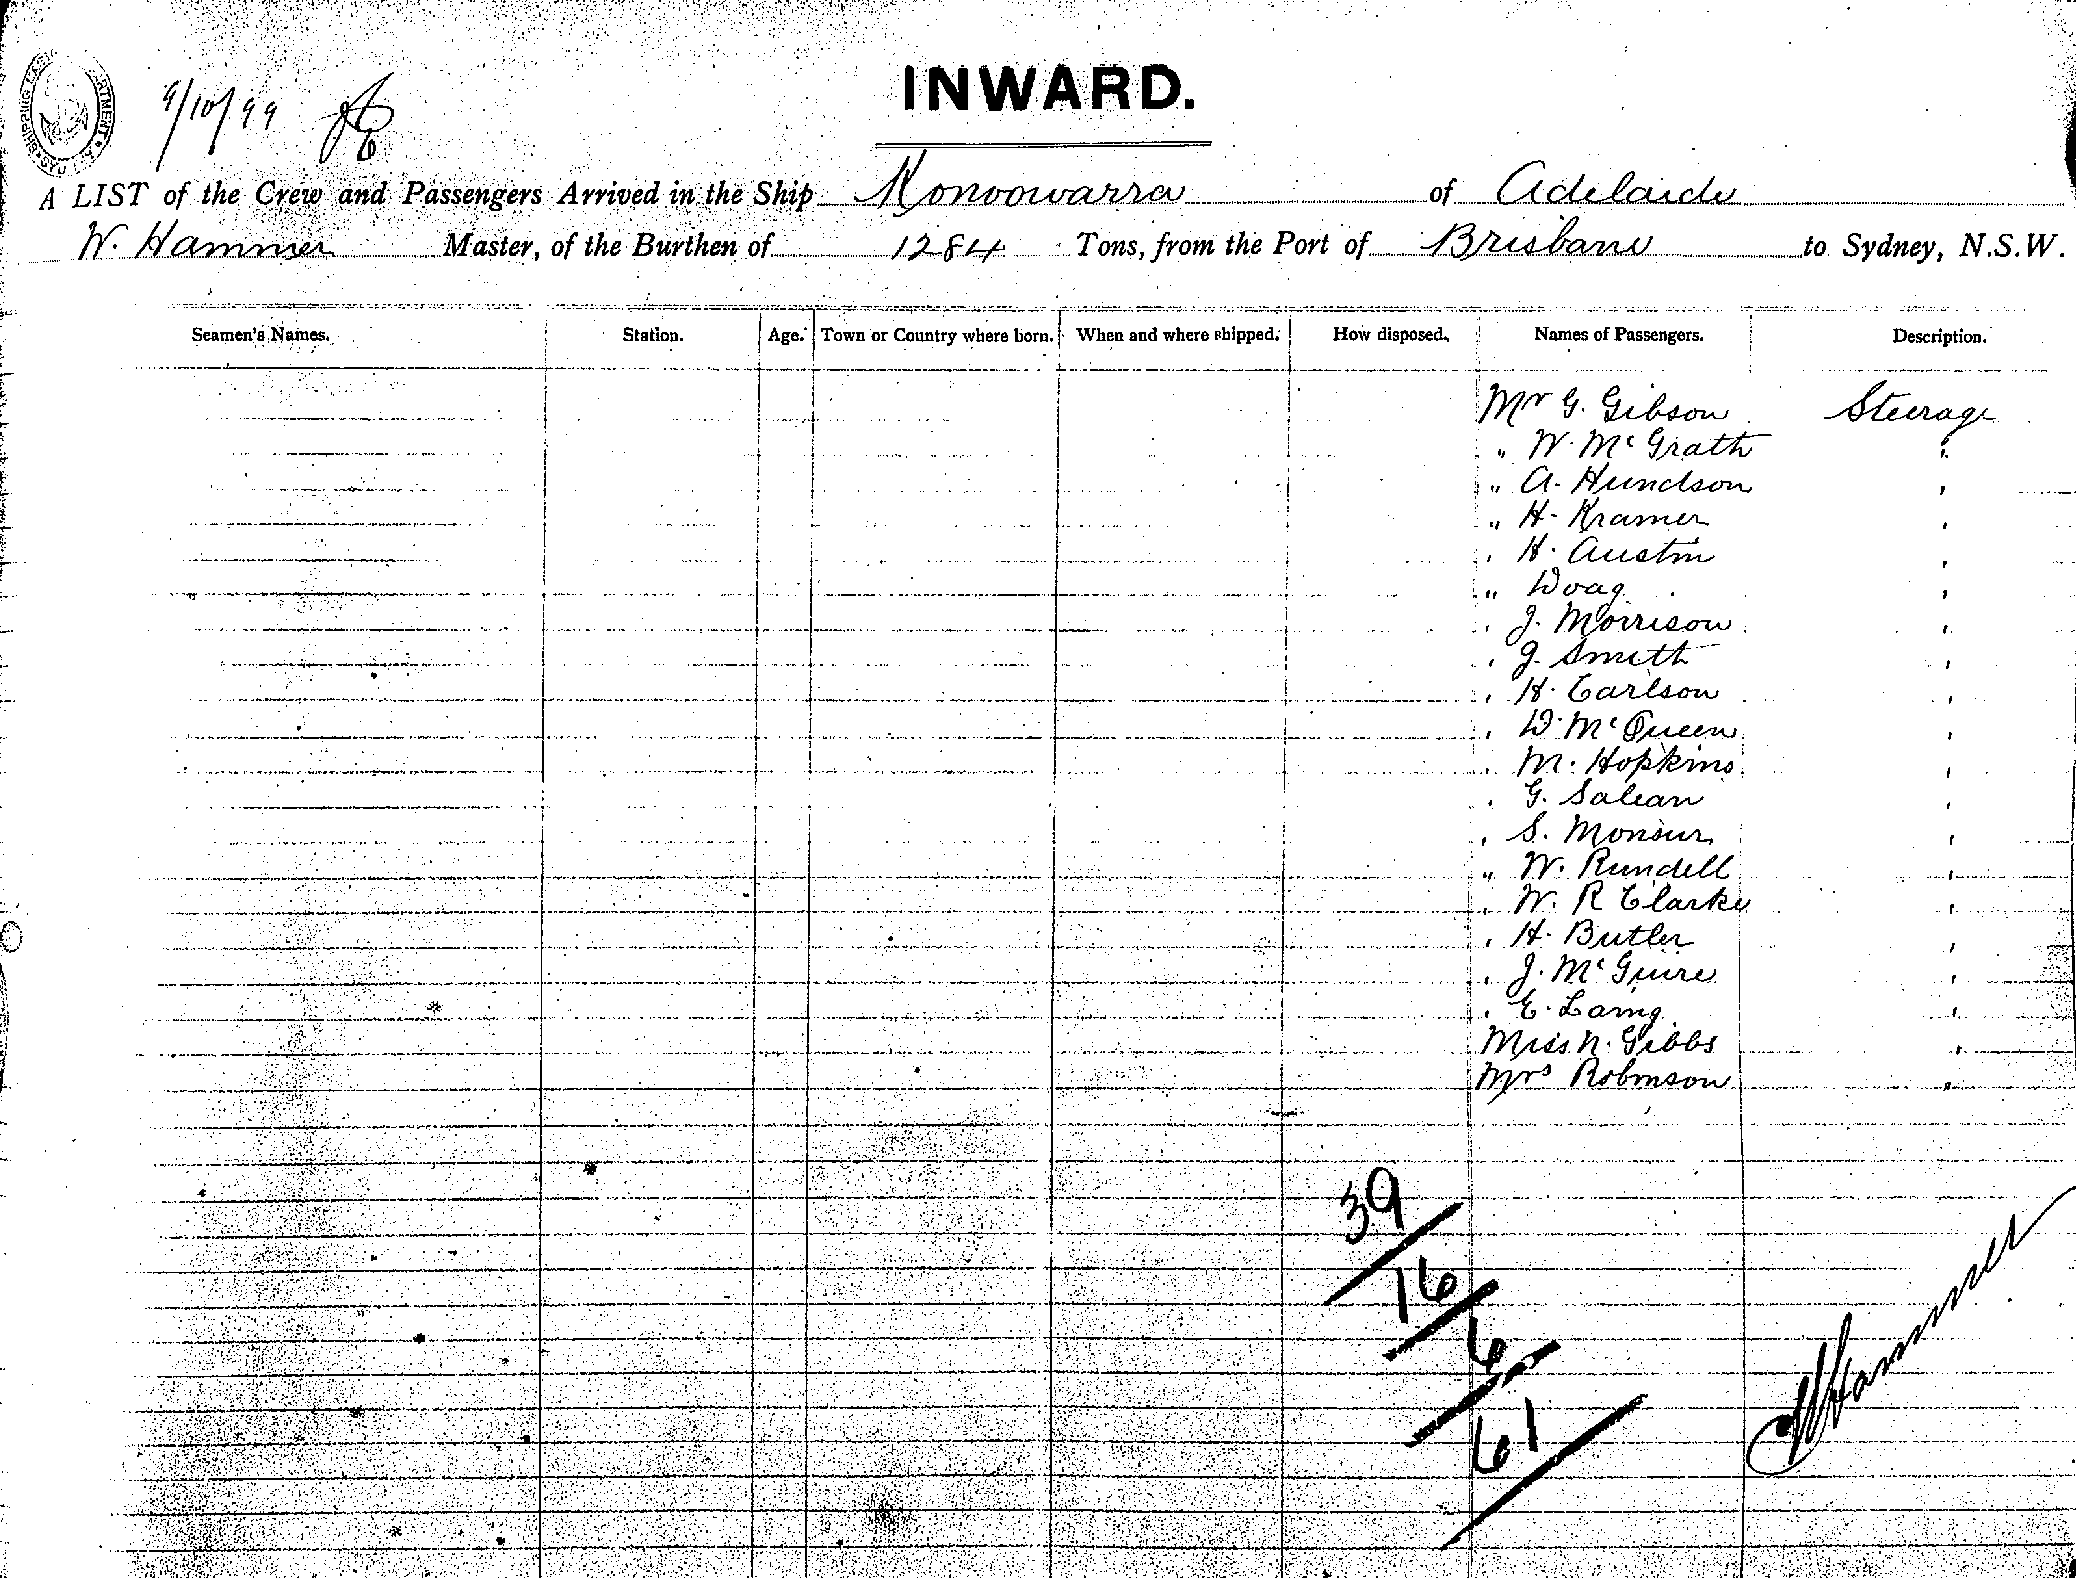 9/10/99
INWARD.
A LIST of the Crew and Passengers Arrived in the Ship Konoowarra of Adelaide
W. Hammer Master, of the Burthen of 1284 Tons, from the Port of Brisbane to Sydney, N.S.W.
Seamen's Names. Station. Age. Town or Country where born. When and where shipped. How disposed. Names of Passengers. Description.
Mr G. Gibson Steerage
" W. McGrath "
" A. Hundson "
" H. Kramer "
" H. Austin "
" Doag "
" J. Morrison "
" J. Smith "
" H. Carlson "
" D. McQueen "
" M. Hopkins "
" G. Salean "
" S. Monsur "
" W. Rundell "
" W. R Clarke "
" H. Butler "
" J. McGuire "
" E. Laing "
Miss N. Gibbs "
Mrs Robinson "
39
16
6
61
W Hammer